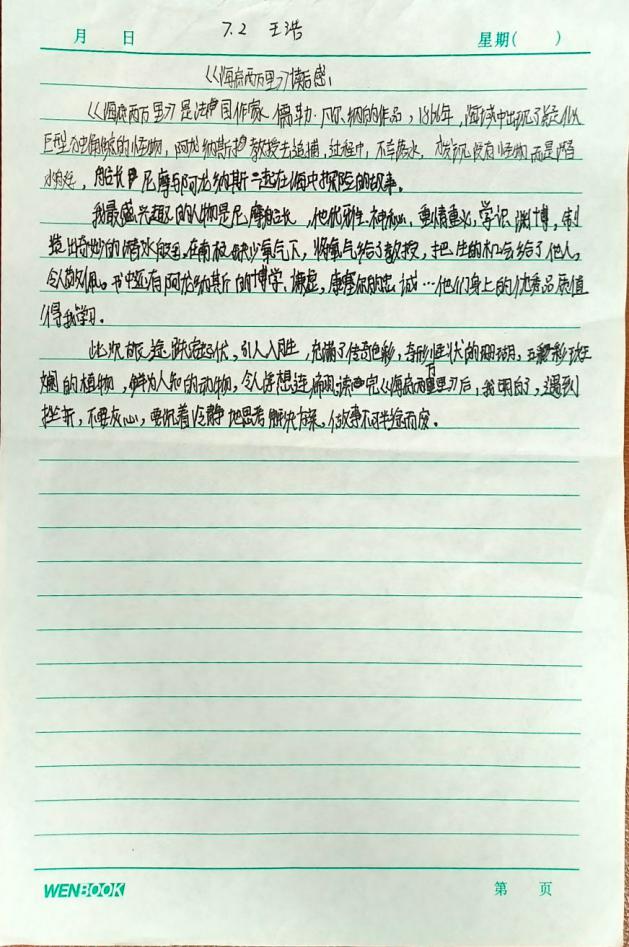 月 日 7.2 王浩 星期( )
《海底两万里》读后感
《海底两万里》是法国作家儒勒·凡尔纳的作品,1866年,海域中出现了疑似
巨型独角鲸的怪物,阿龙纳斯教授去追捕,过程中,不幸落水,发现没有怪物而是潜
水艇,船长尼摩与阿龙纳斯一起在海中探险的故事。
我最感兴趣的人物是尼摩船长,他优雅神秘、重情重义、学识渊博,制
造出奇妙的潜水艇,在南极缺少氧气下,将氧气给了教授,把生的机会给了他人,
令人敬佩。书中还有阿龙纳斯的博学、谦虚,康塞尔的忠诚…他们身上的优秀品质值
得我学习。
此次旅途跌宕起伏,引人入胜,充满了传奇色彩,奇形怪状的珊瑚,五彩斑
斓的植物,鲜为人知的动物,令人浮想连翩,读完《海底两万里》后,我明白了,遇到
挫折,不要灰心,要沉着冷静地思考解决方案,做事不可半途而废。
WENBOOK
第 页